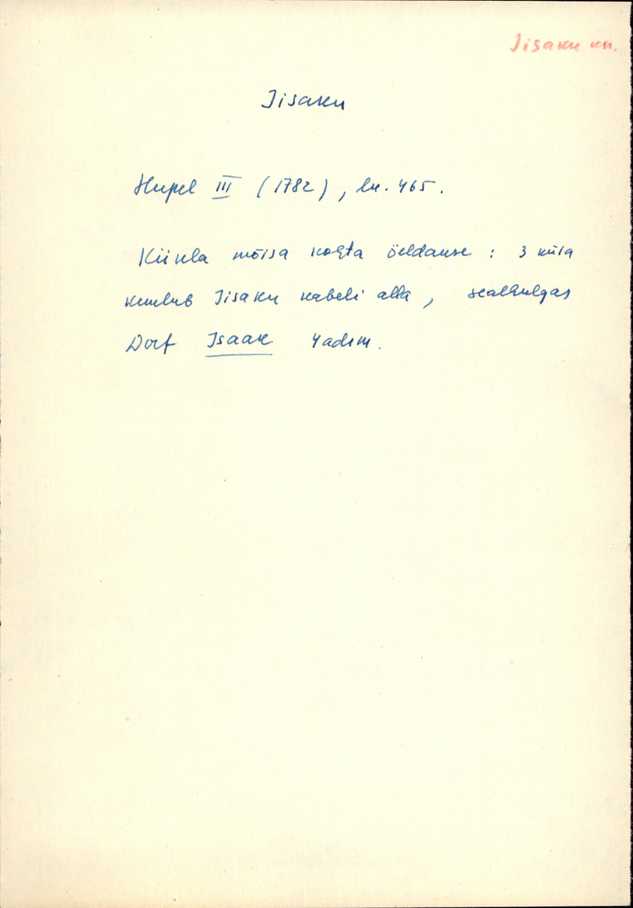 Iisaku kn.
Iisaku
Hupel III (1782), lk. 465.
Kiikla mõisa kohta öeldakse : 3 küla
kuulub Iisaku kabeli alla, sealhulgas
Dorf Isaak 4 adrm.